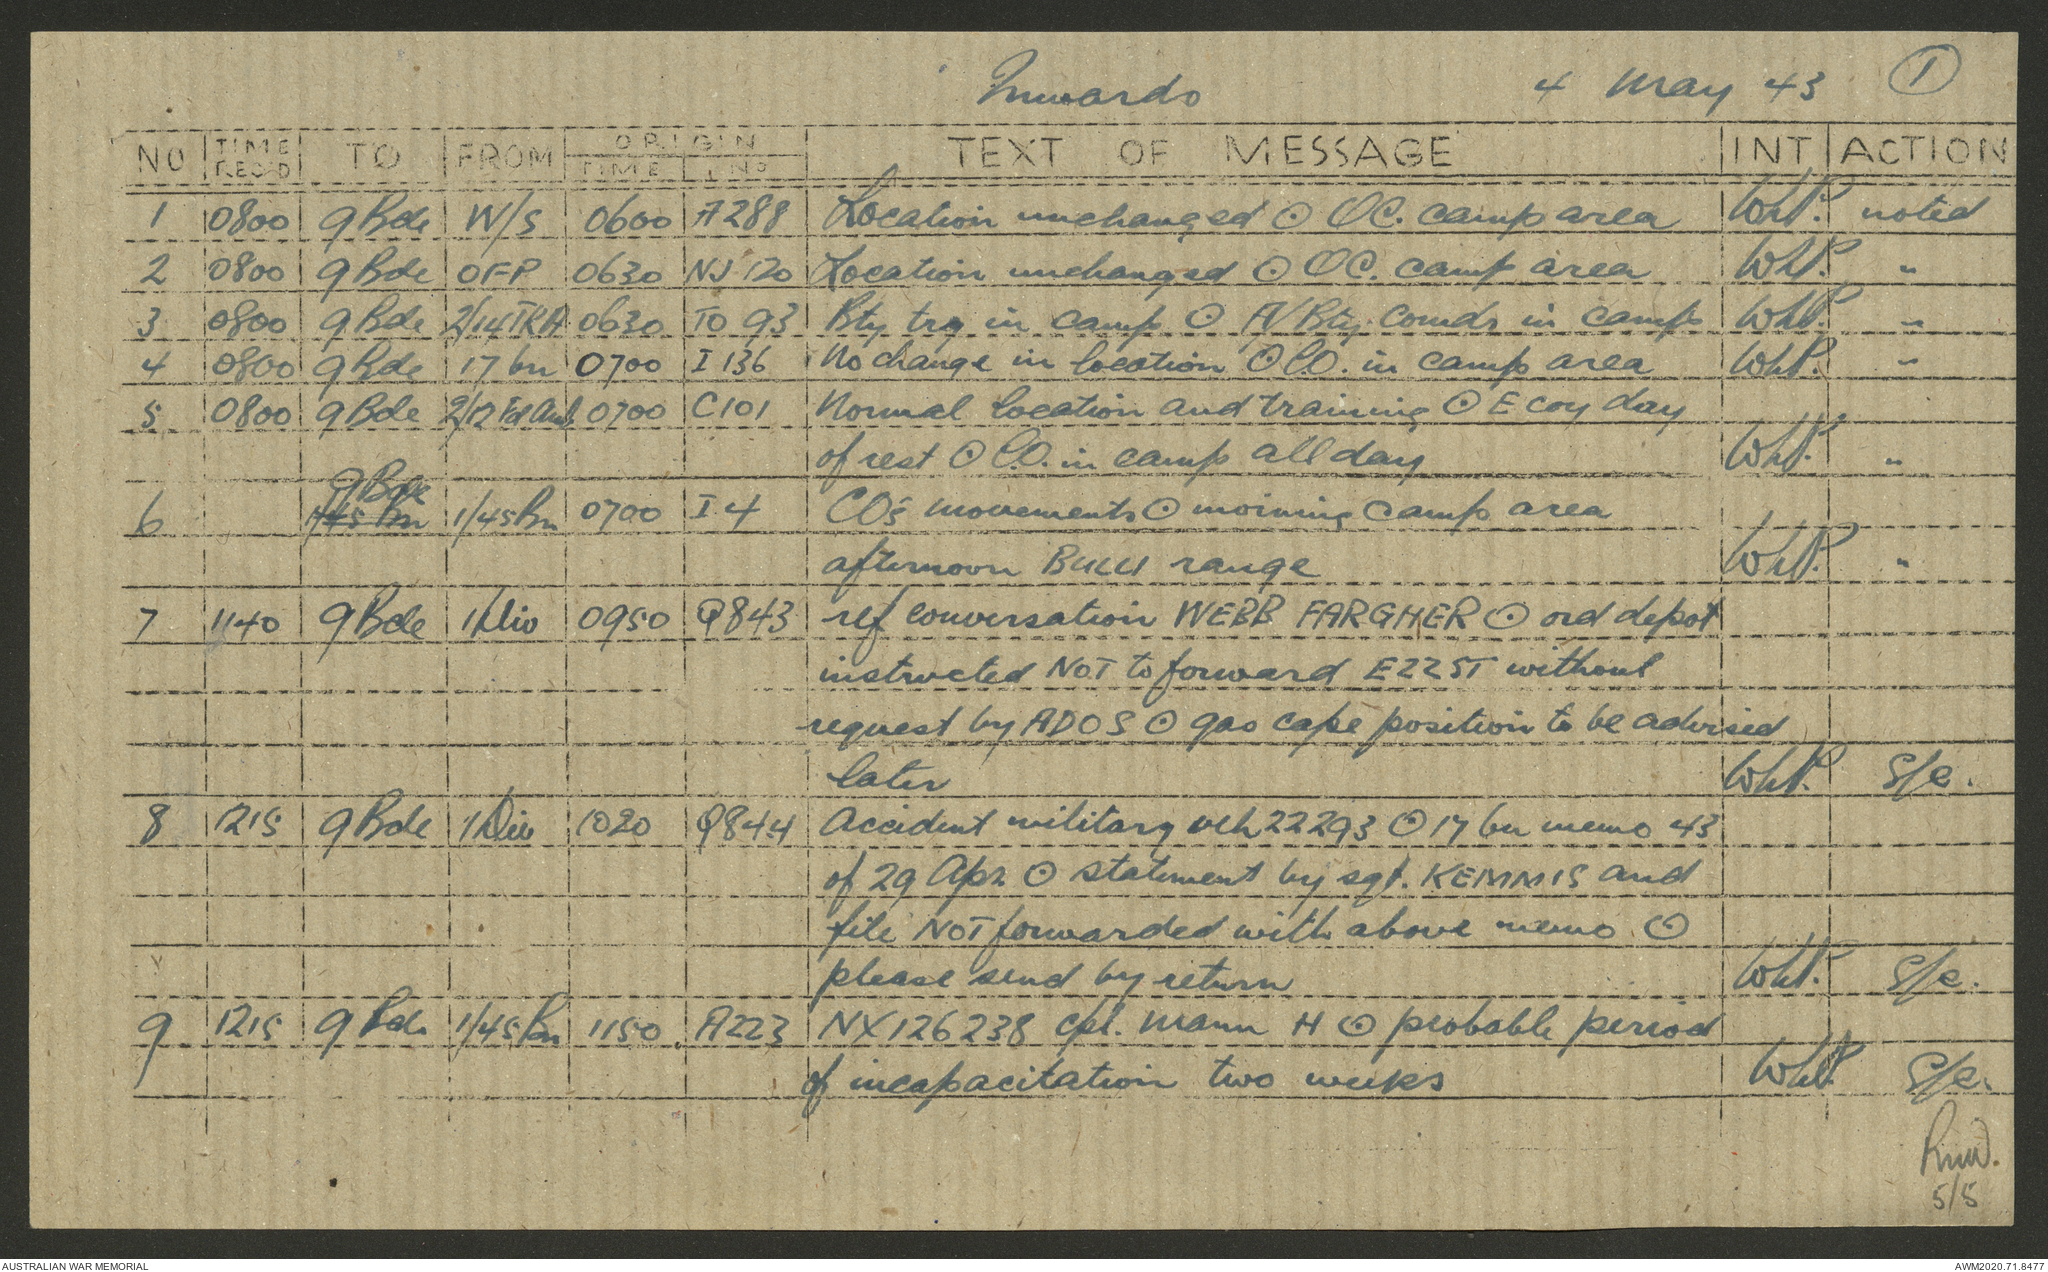 Inwards 4 May 43 1
NO TIME REC'D TO FROM ORIGIN TIME NO TEXT OF MESSAGE INT ACTION
1 0800 9 Bde W/S 0600 A288 Location unchanged ⊙ OC. camp area WhP. noted
2 0800 9 Bde OFP 0630 NJ 120 Location unchanged ⊙ OC. camp area WhP. "
3 0800 9 Bde 0630 TO 93 Bty trg in camp ⊙ A/Bty comdr in camp WhP. "
4 0800 9 Bde 17 bn 0700 I 136 No change in location ⊙ CO. in camp area WhP. "
5 0800 9 Bde 2/12 Fd Amb 0700 C101 Normal location and training ⊙ E coy day
of rest ⊙ C.O. in camp all day WhP. "
9 Bde
6 1/45 Bn 1/45 Bn 0700 I 4 CO's movements ⊙ morning camp area
afternoon BULLI range WhP. "
7 1140 9 Bde 1 Div 0950 Q843 ref conversation WEBB FARGHER ⊙ ord depot
instructed NOT to forward E22ST without
request by ADOS ⊙ gas cape position to be advised
later WhP. S/c.
8 1215 9 Bde 1 Div 1020 Q844 Accident military veh 22293 ⊙ 17 bn memo 43
of 29 Apr ⊙ statement by sgt. KEMMIS and
file NOT forwarded with above memo ⊙
please send by return WhP. S/c.
9 1215 9 Bde 1/45 Bn 1150 A223 NX126238 Cpl. Mann H ⊙ probable period
of incapacitation two weeks WhP. S/c.
5/5
AUSTRALIAN WAR MEMORIAL AWM2020.71.8477